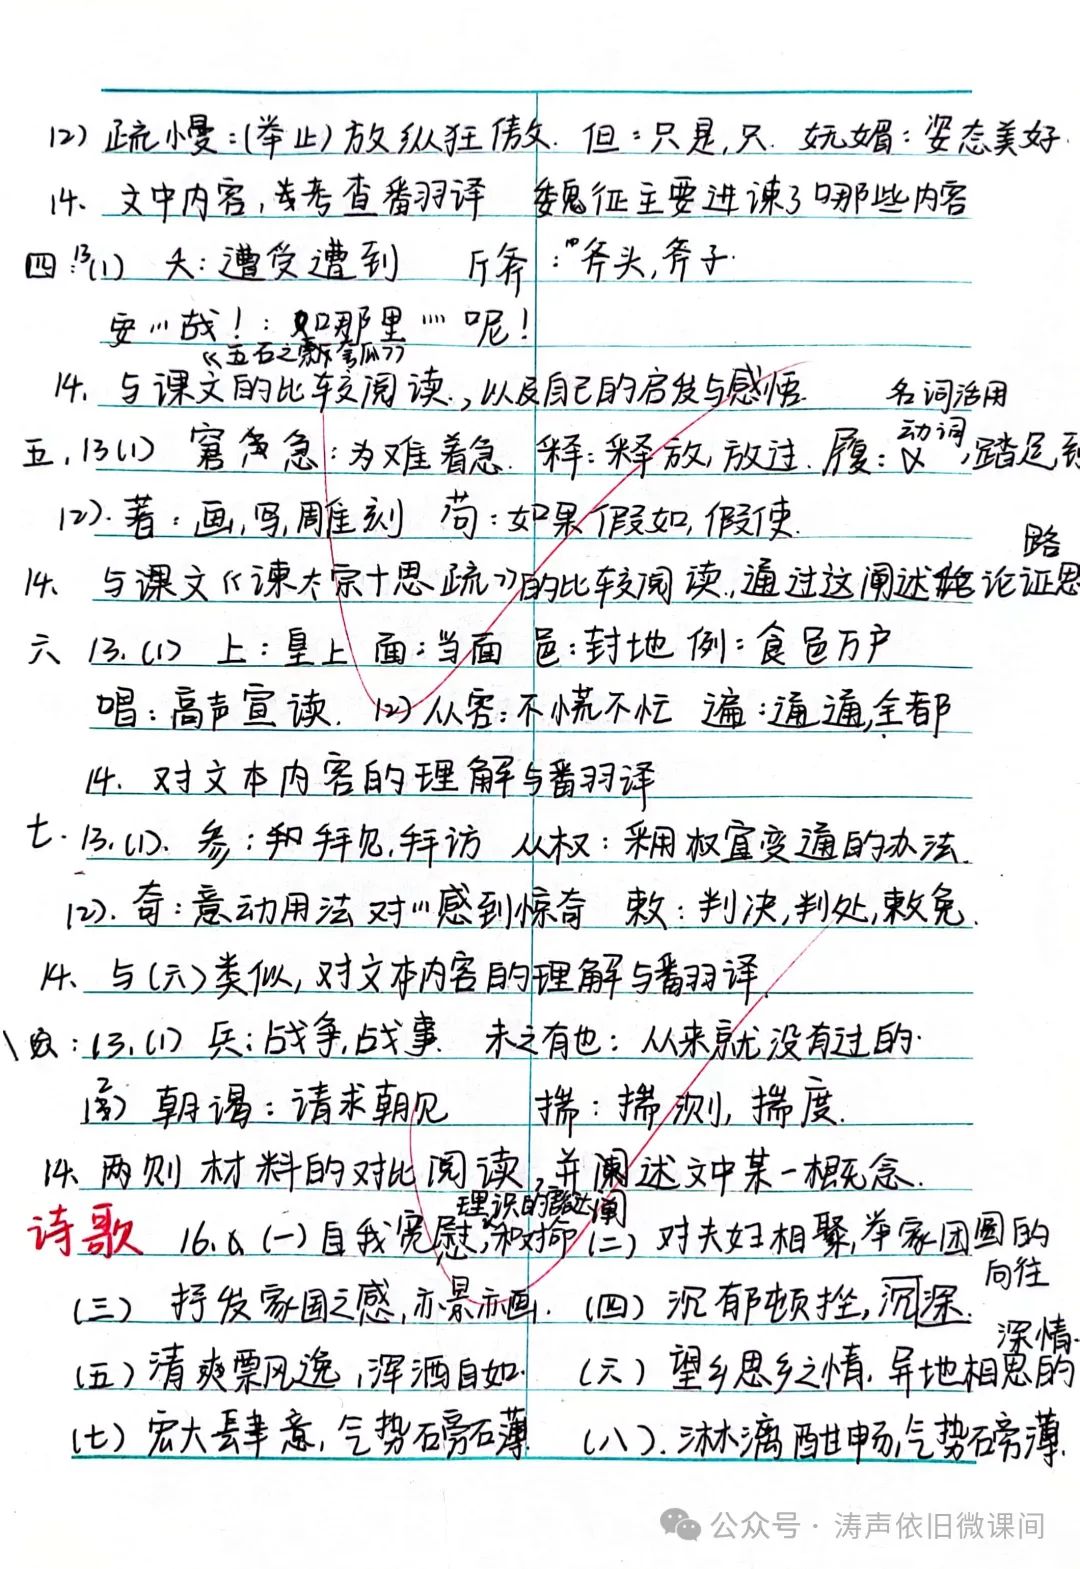 (2) 疏慢:(举止)放纵狂傲. 但:只是,只. 妩媚:姿态美好.
14、文中内容,考查翻译 魏征主要进谏了哪些内容
四:13(1) 夭:遭受遭到 斤斧:斧头,斧子.
安…哉!:如哪里……呢!
《五石之瓠》
14、与课文的比较阅读.,以及自己的启发与感悟.
名词活用
动词
五.13(1) 窘急:为难着急. 释:释放,放过. 履: ,踏足到
(2).著:画,写,雕刻 苟:如果假如,假使.
路
14、与课文《谏太宗十思疏》的比较阅读.,通过这阐述 论证思
六 13.(1) 上:皇上 面:当面 邑:封地 例:食邑万户
唱:高声宣读. (2)从容:不慌不忙 遍:通通,全都
14.对文本内容的理解与翻译
七.13.(1). 参:拜见,拜访 从权:采用权宜变通的办法.
(2).奇:意动用法对…感到惊奇 赦:判决,判处,赦免.
14.与(六)类似,对文本内容的理解与翻译.
八 :13.(1) 兵:战争,战事. 未之有也:从来就没有过的.
(2) 朝谒:请求朝见 揣:揣测,揣度.
14.两则材料的对比阅读,并阐述文中某一概念.
诗歌 16. (一)自我宽慰,和对命 (二)对夫妇相聚,举家团圆的
向往
(三) 抒发家国之感,亦景亦画. (四)沉郁顿挫,沉深.
深情.
(五)清爽飘逸,浑洒自如. (六) 望乡思乡之情.异地相思的
(七)宏大肆意,气势磅礴. (八).淋漓酣畅,气势磅薄.
公众号·涛声依旧微课间